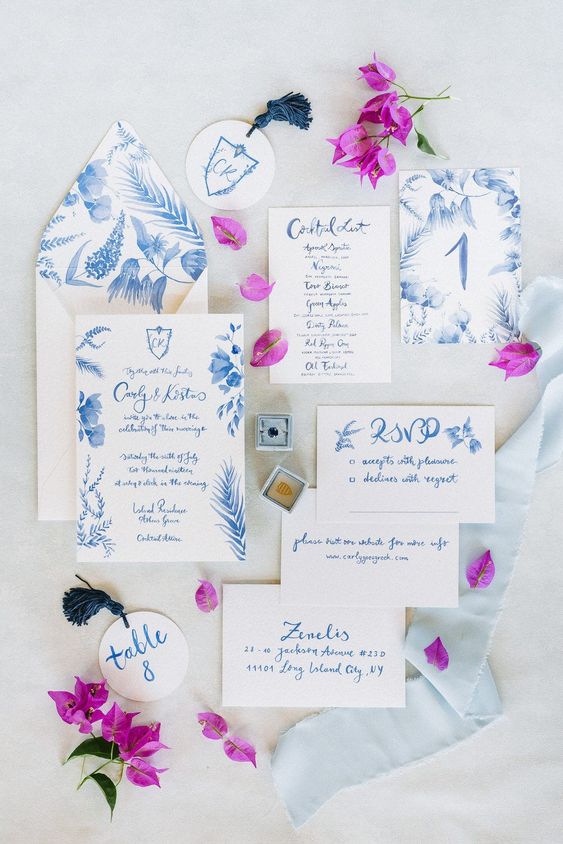 CK
Cocktail List
Aperol Spritz
Negroni
Toro Bianco
Green Apples
Dirty Palace
Red Pepper
Old Fashioned
1
CK
Together with their families
Carly & Kostas
invite you to share in the
celebration of their marriage
Saturday the sixth of July
Two thousand nineteen
at seven o'clock in the evening
Island Residence
Athens Greece
Cocktail Attire
RSVP
accepts with pleasure
declines with regret
please visit our website for more info
www.carlygoesgreek.com
Zenelis
28-10 Jackson Avenue #23D
11101 Long Island City, NY
table
8